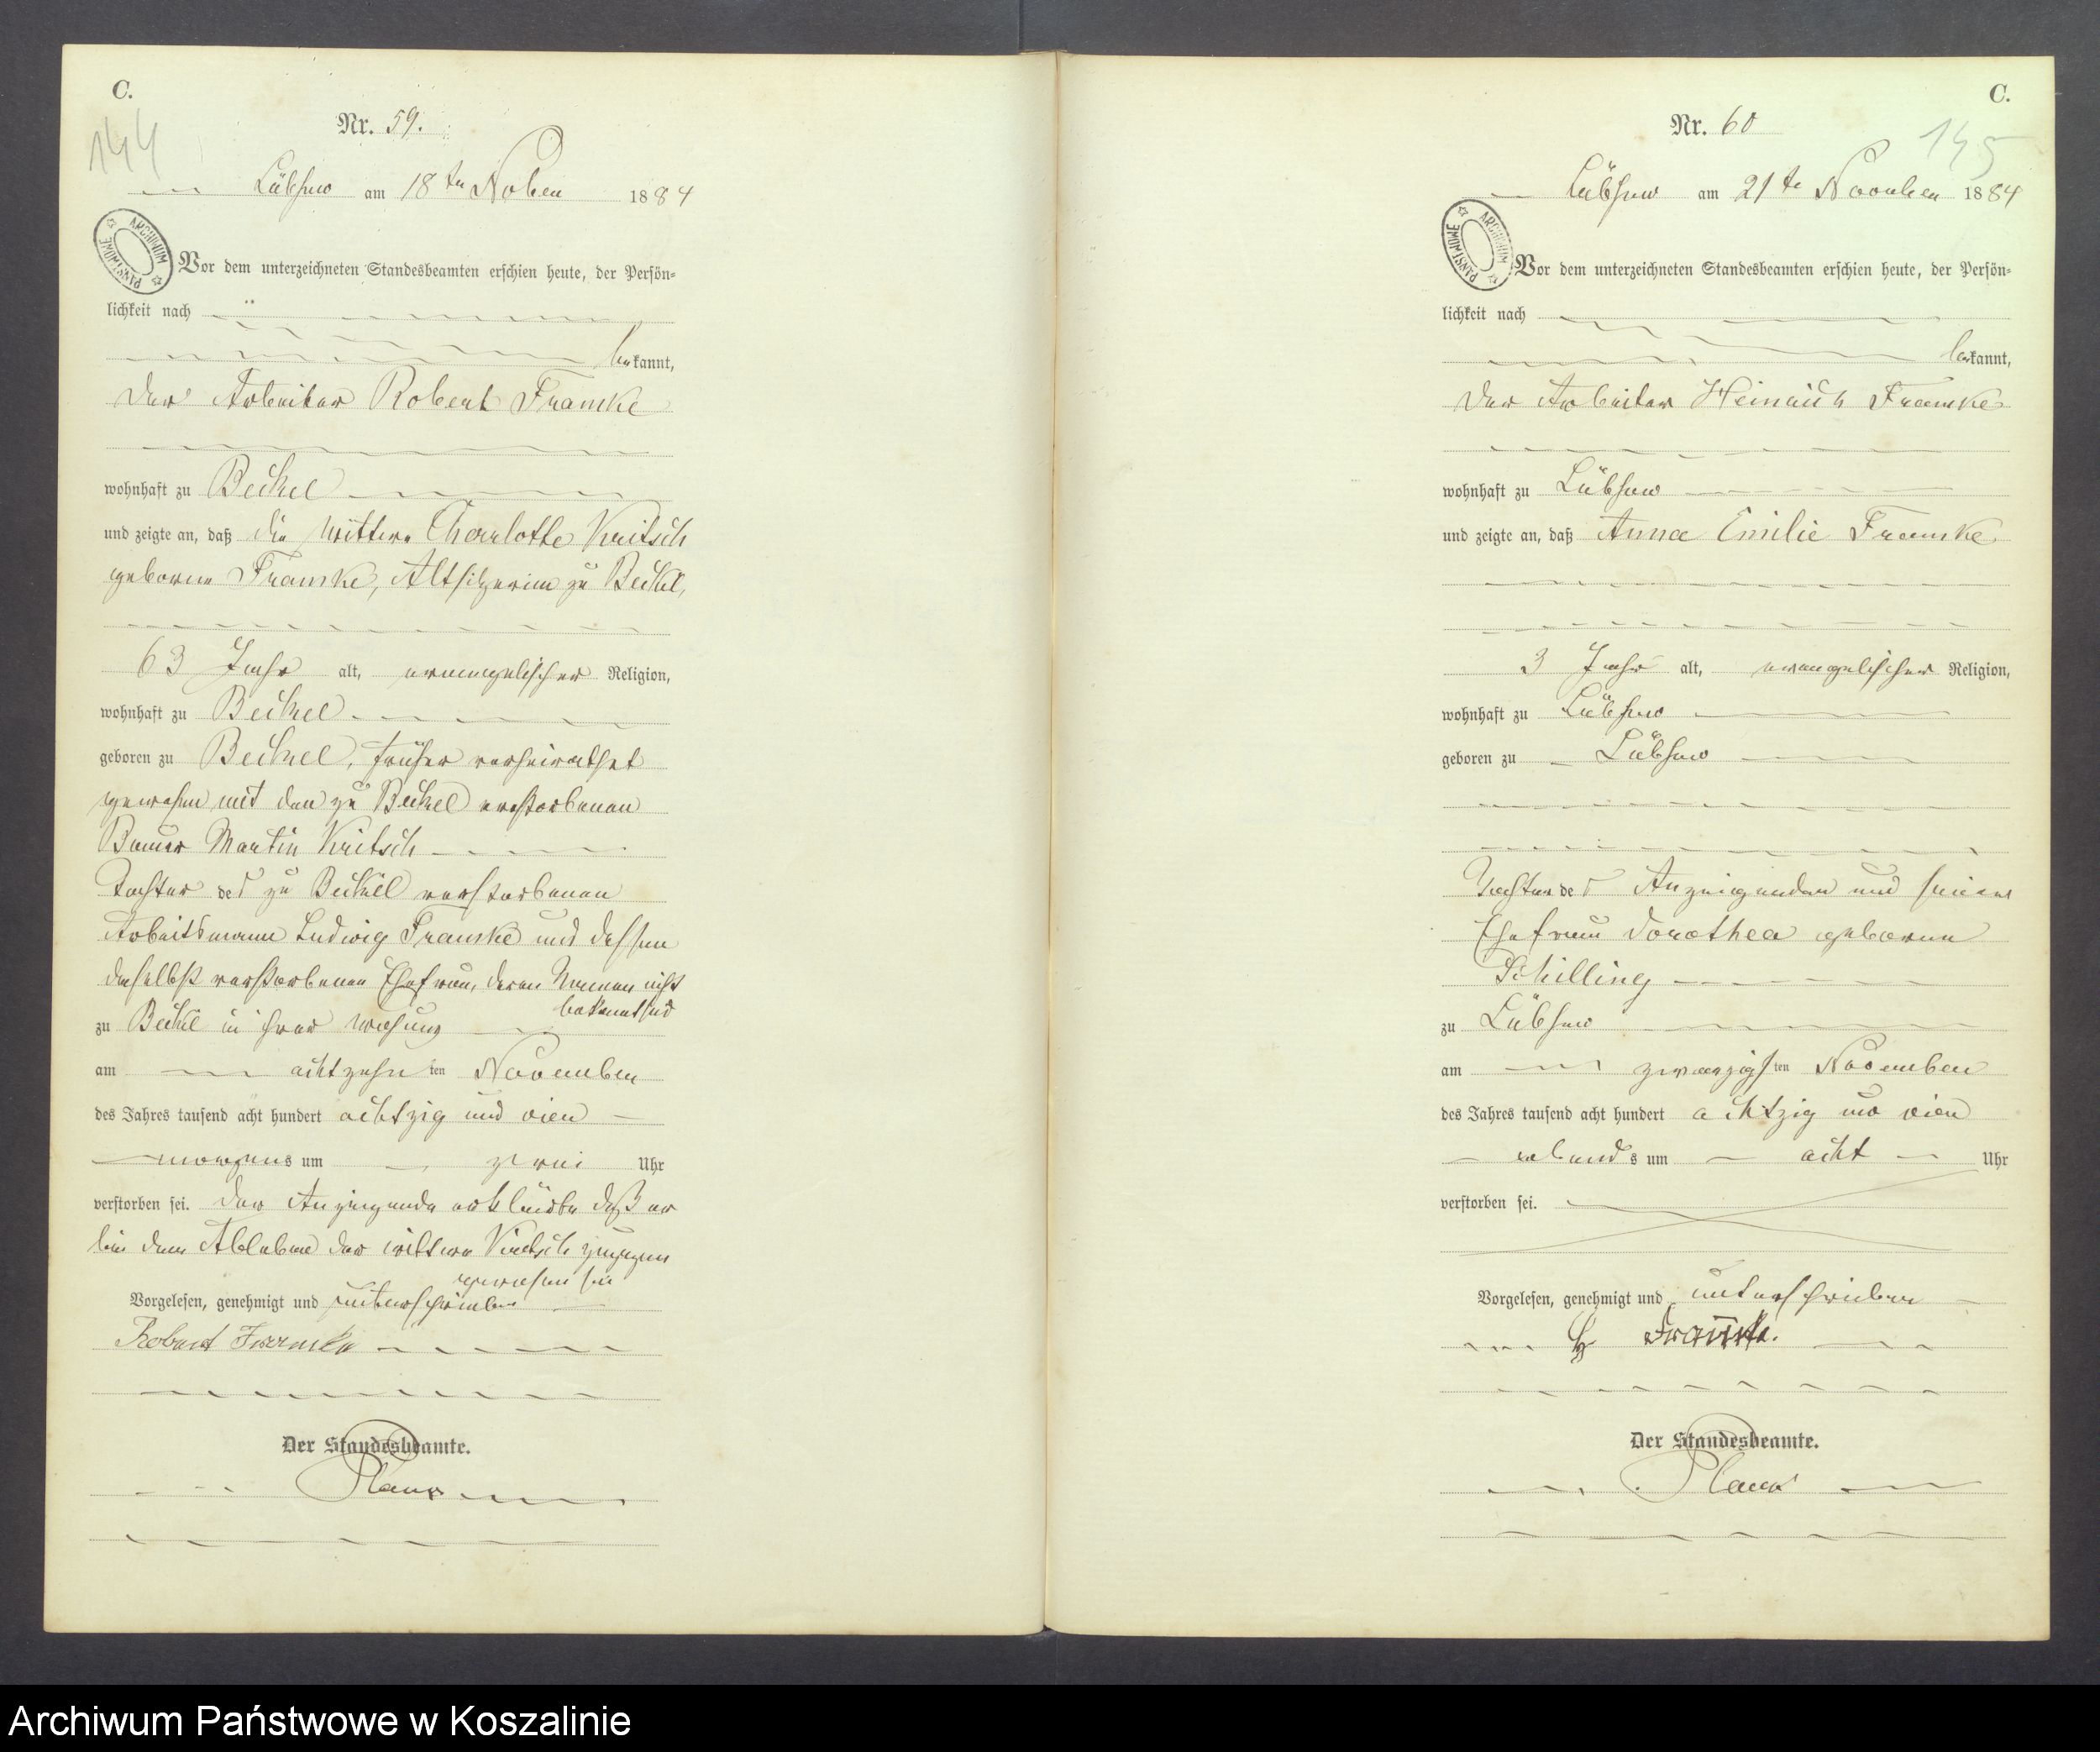 C.
144
Nr. 59.
Lübsow am 18ten Novbr 1884
ARCHIWUM PAŃSTWOWE
Vor dem unterzeichneten Standesbeamten erschien heute, der Persön=
lichkeit nach
bekannt,
der Arbeiter Robert Franske
wohnhaft zu Beckel
und zeigte an, daß die Wittwe Charlotte Kritsch
geborne Franske, Altsitzerin zu Beckel,
63 Jahr alt, evangelischer Religion,
wohnhaft zu Beckel
geboren zu Beckel, früher verheirathet
gewesen mit dem zu Beckel verstorbenen
Bauer Martin Kritsch
Tochter des zu Beckel verstorbenen
Arbeitsmann Ludwig Franske und dessen
daselbst verstorbenen Ehefrau, deren Namen nicht
bekannt sind
zu Beckel in ihrer Wohnung
am achtzehnten November
des Jahres tausend acht hundert achtzig und vier
morgens um zwei Uhr
verstorben sei. Der Anzeigende erklärte daß er
bei dem Ableben der Wittwe Kritsch zugegen
gewesen sei
Vorgelesen, genehmigt und unterschrieben
Robert Franske
Der Standesbeamte.
C.
145
Nr. 60
Lübsow am 21te November 1884
ARCHIWUM PAŃSTWOWE
Vor dem unterzeichneten Standesbeamten erschien heute, der Persön=
lichkeit nach
bekannt,
der Arbeiter Heinrich Franske
wohnhaft zu Lübsow
und zeigte an, daß Anna Emilie Franske
3 Jahr alt, evangelischer Religion,
wohnhaft zu Lübsow
geboren zu Lübsow
Tochter des Anzeigenden und seiner
Ehefrau Dorothea geborne
Schilling
zu Lübsow
am zwanzigsten November
des Jahres tausend acht hundert achtzig und vier
abends um acht Uhr
verstorben sei.
Vorgelesen, genehmigt und unterschrieben
H Franske.
Der Standesbeamte.
Archiwum Państwowe w Koszalinie